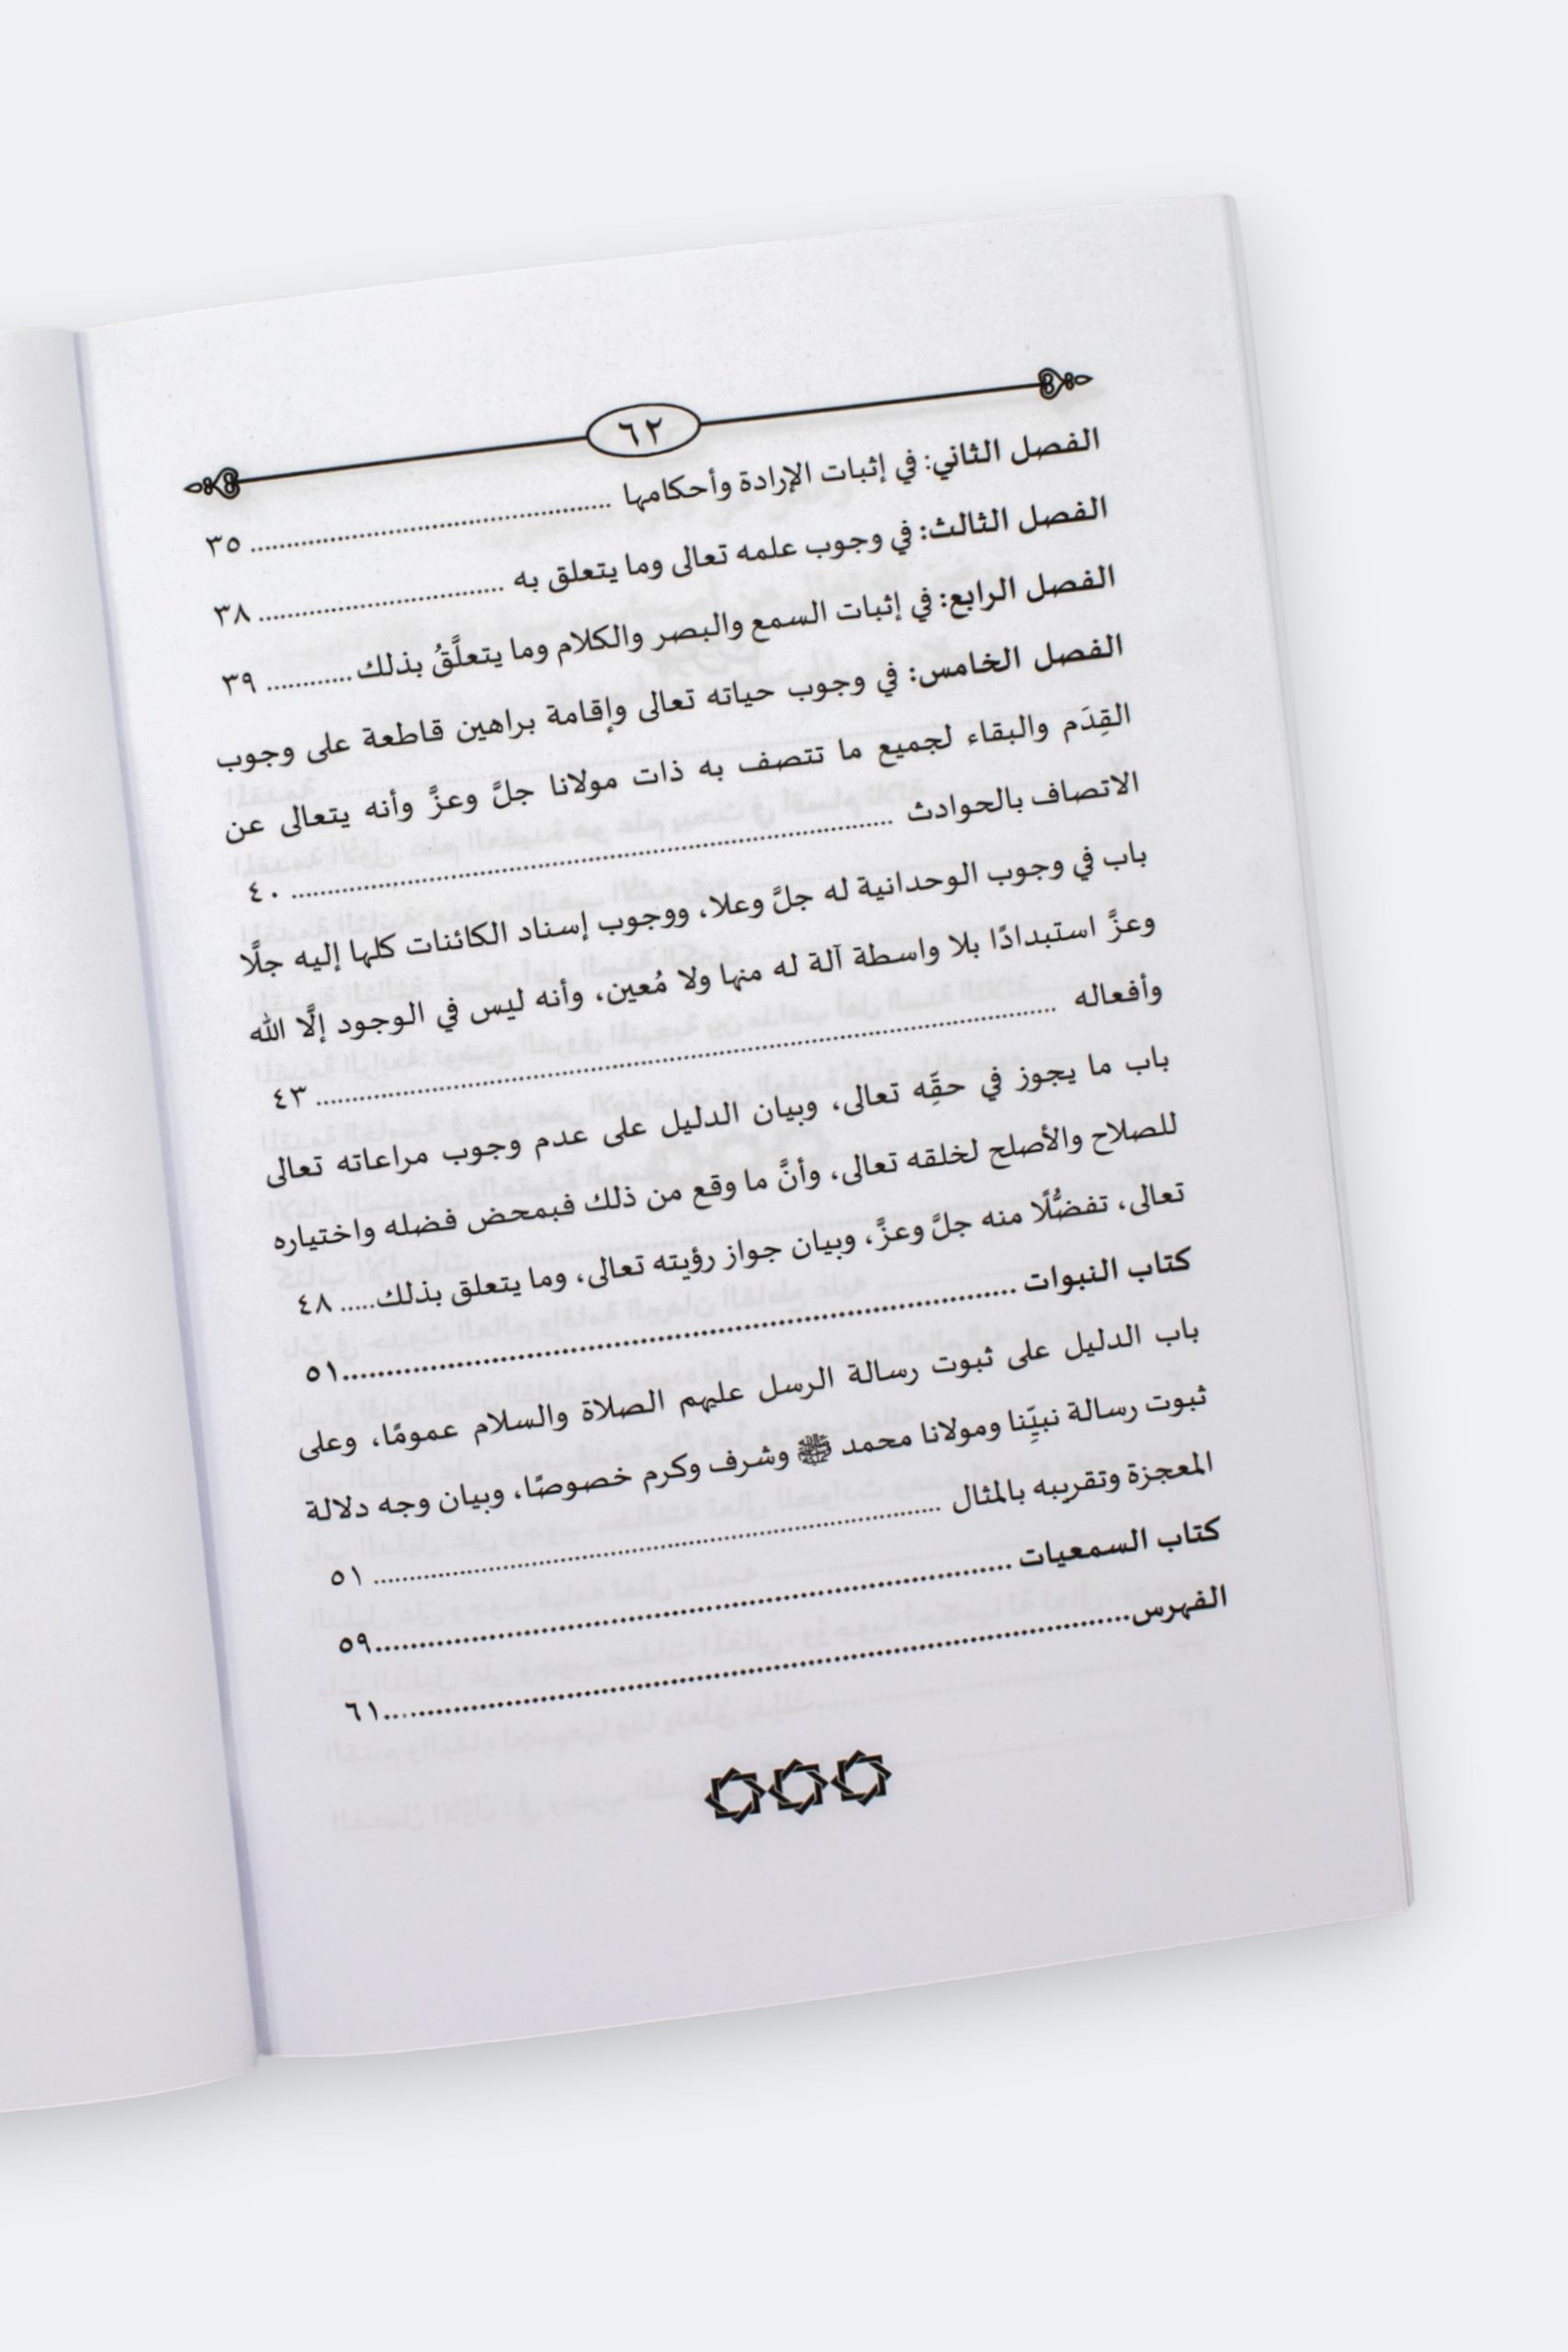 ٦٢
الفصل الثاني: في إثبات الإرادة وأحكامها ........................................ ٣٥
الفصل الثالث: في وجوب علمه تعالى وما يتعلق به ........................... ٣٨
الفصل الرابع: في إثبات السمع والبصر والكلام وما يتعلَّقُ بذلك............ ٣٩
الفصل الخامس: في وجوب حياته تعالى وإقامة براهين قاطعة على وجوب
القِدَم والبقاء لجميع ما تتصف به ذات مولانا جلَّ وعزَّ وأنه يتعالى عن
الاتصاف بالحوادث ................................................................ ٤٠
باب في وجوب الوحدانية له جلَّ وعلا، ووجوب إسناد الكائنات كلها إليه جلَّا
وعزَّ استبدادًا بلا واسطة آلة له منها ولا مُعين، وأنه ليس في الوجود إلَّا الله
وأفعاله ................................................................................ ٤٣
باب ما يجوز في حقِّه تعالى، وبيان الدليل على عدم وجوب مراعاته تعالى
للصلاح والأصلح لخلقه تعالى، وأنَّ ما وقع من ذلك فبمحض فضله واختياره
تعالى، تفضُّلًا منه جلَّ وعزَّ، وبيان جواز رؤيته تعالى، وما يتعلق بذلك..... ٤٨
كتاب النبوات ........................................................................٥١
باب الدليل على ثبوت رسالة الرسل عليهم الصلاة والسلام عمومًا، وعلى
ثبوت رسالة نبيِّنا ومولانا محمد ﷺ وشرف وكرم خصوصًا، وبيان وجه دلالة
المعجزة وتقريبه بالمثال ............................................................ ٥١
كتاب السمعيات ....................................................................٥٩
الفهرس................................................................................٦١